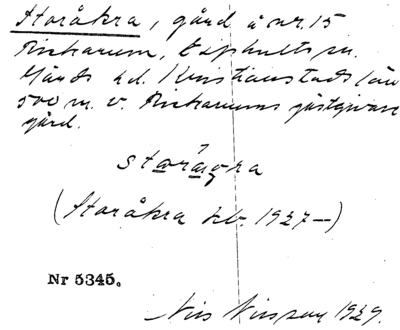 Storåkra, gård å nr. 15
Rickarum, Äsphults sn.
Gärds hd. Kristianstads län
500 m. v. Rickarums gästgivare
gård.
storågra
(Storåkra kb. 1927–)
Nr 5345.
Nils Nilsson 1929.